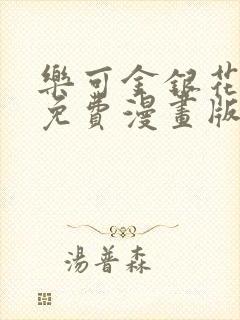 樂可金銀花
免費漫畫版
湯普森